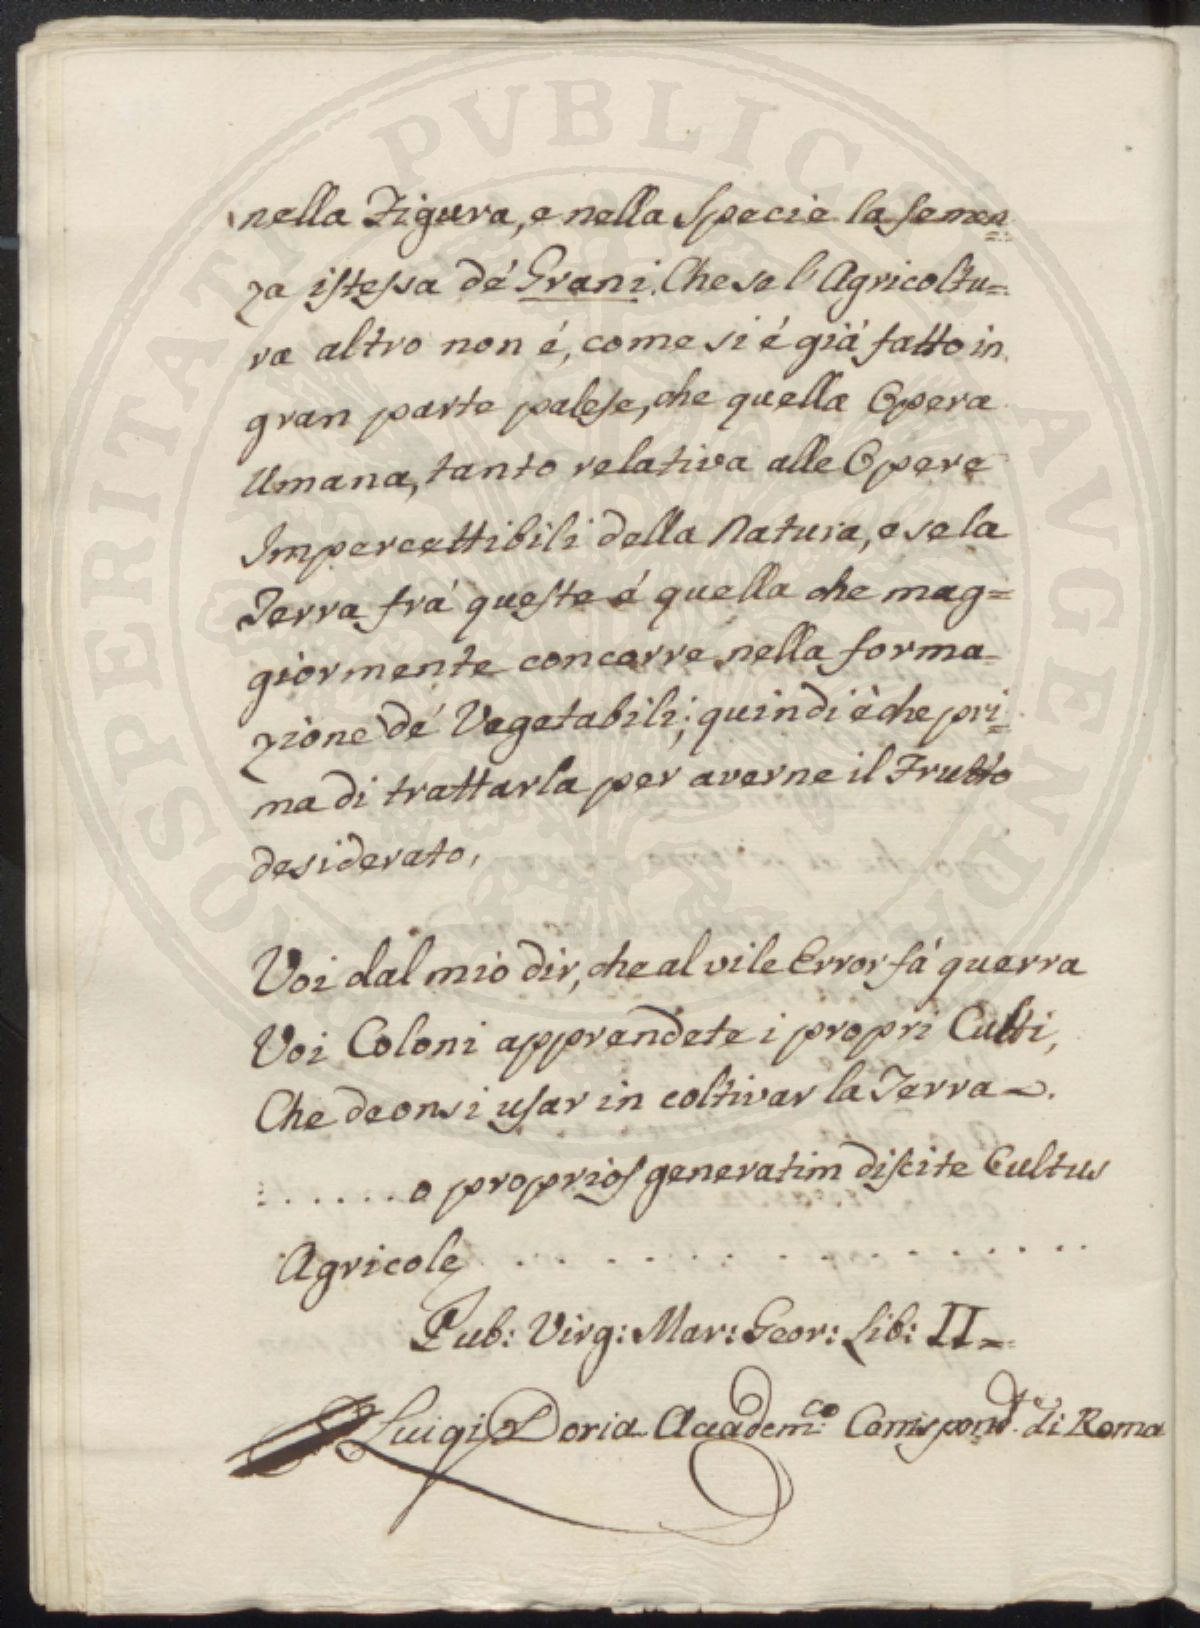 nella Figura, e nella Specie la Semen=
za istessa dé Grani. Che se l'Agricoltu=
ra altro non é, come si é giá fatto in
gran parte palese, che quella Opera
Umana, tanto relativa alle Opere
Impercettibili della Natura, e se la
Terra frá queste é quella che mag=
giormente concorre nella forma=
zione dé Vegetabili; quindi è che pri=
ma di trattarla per averne il Frutto
desiderato,
Voi dal mio dir, che al vile Error fá guerra
Voi Coloni apprendete i propri Culti,
Che deonsi usar in coltivar la Terra.
. . . . . . o proprios generatim discite Cultus
Agricole . . . . . . . . . . . . . .
Pub: Virg: Mar: Geor: Lib: II=
Luigi Doria Academ:co Corrispond.te di Roma
PROSPERITATI PVBLICAE AVGENDAE